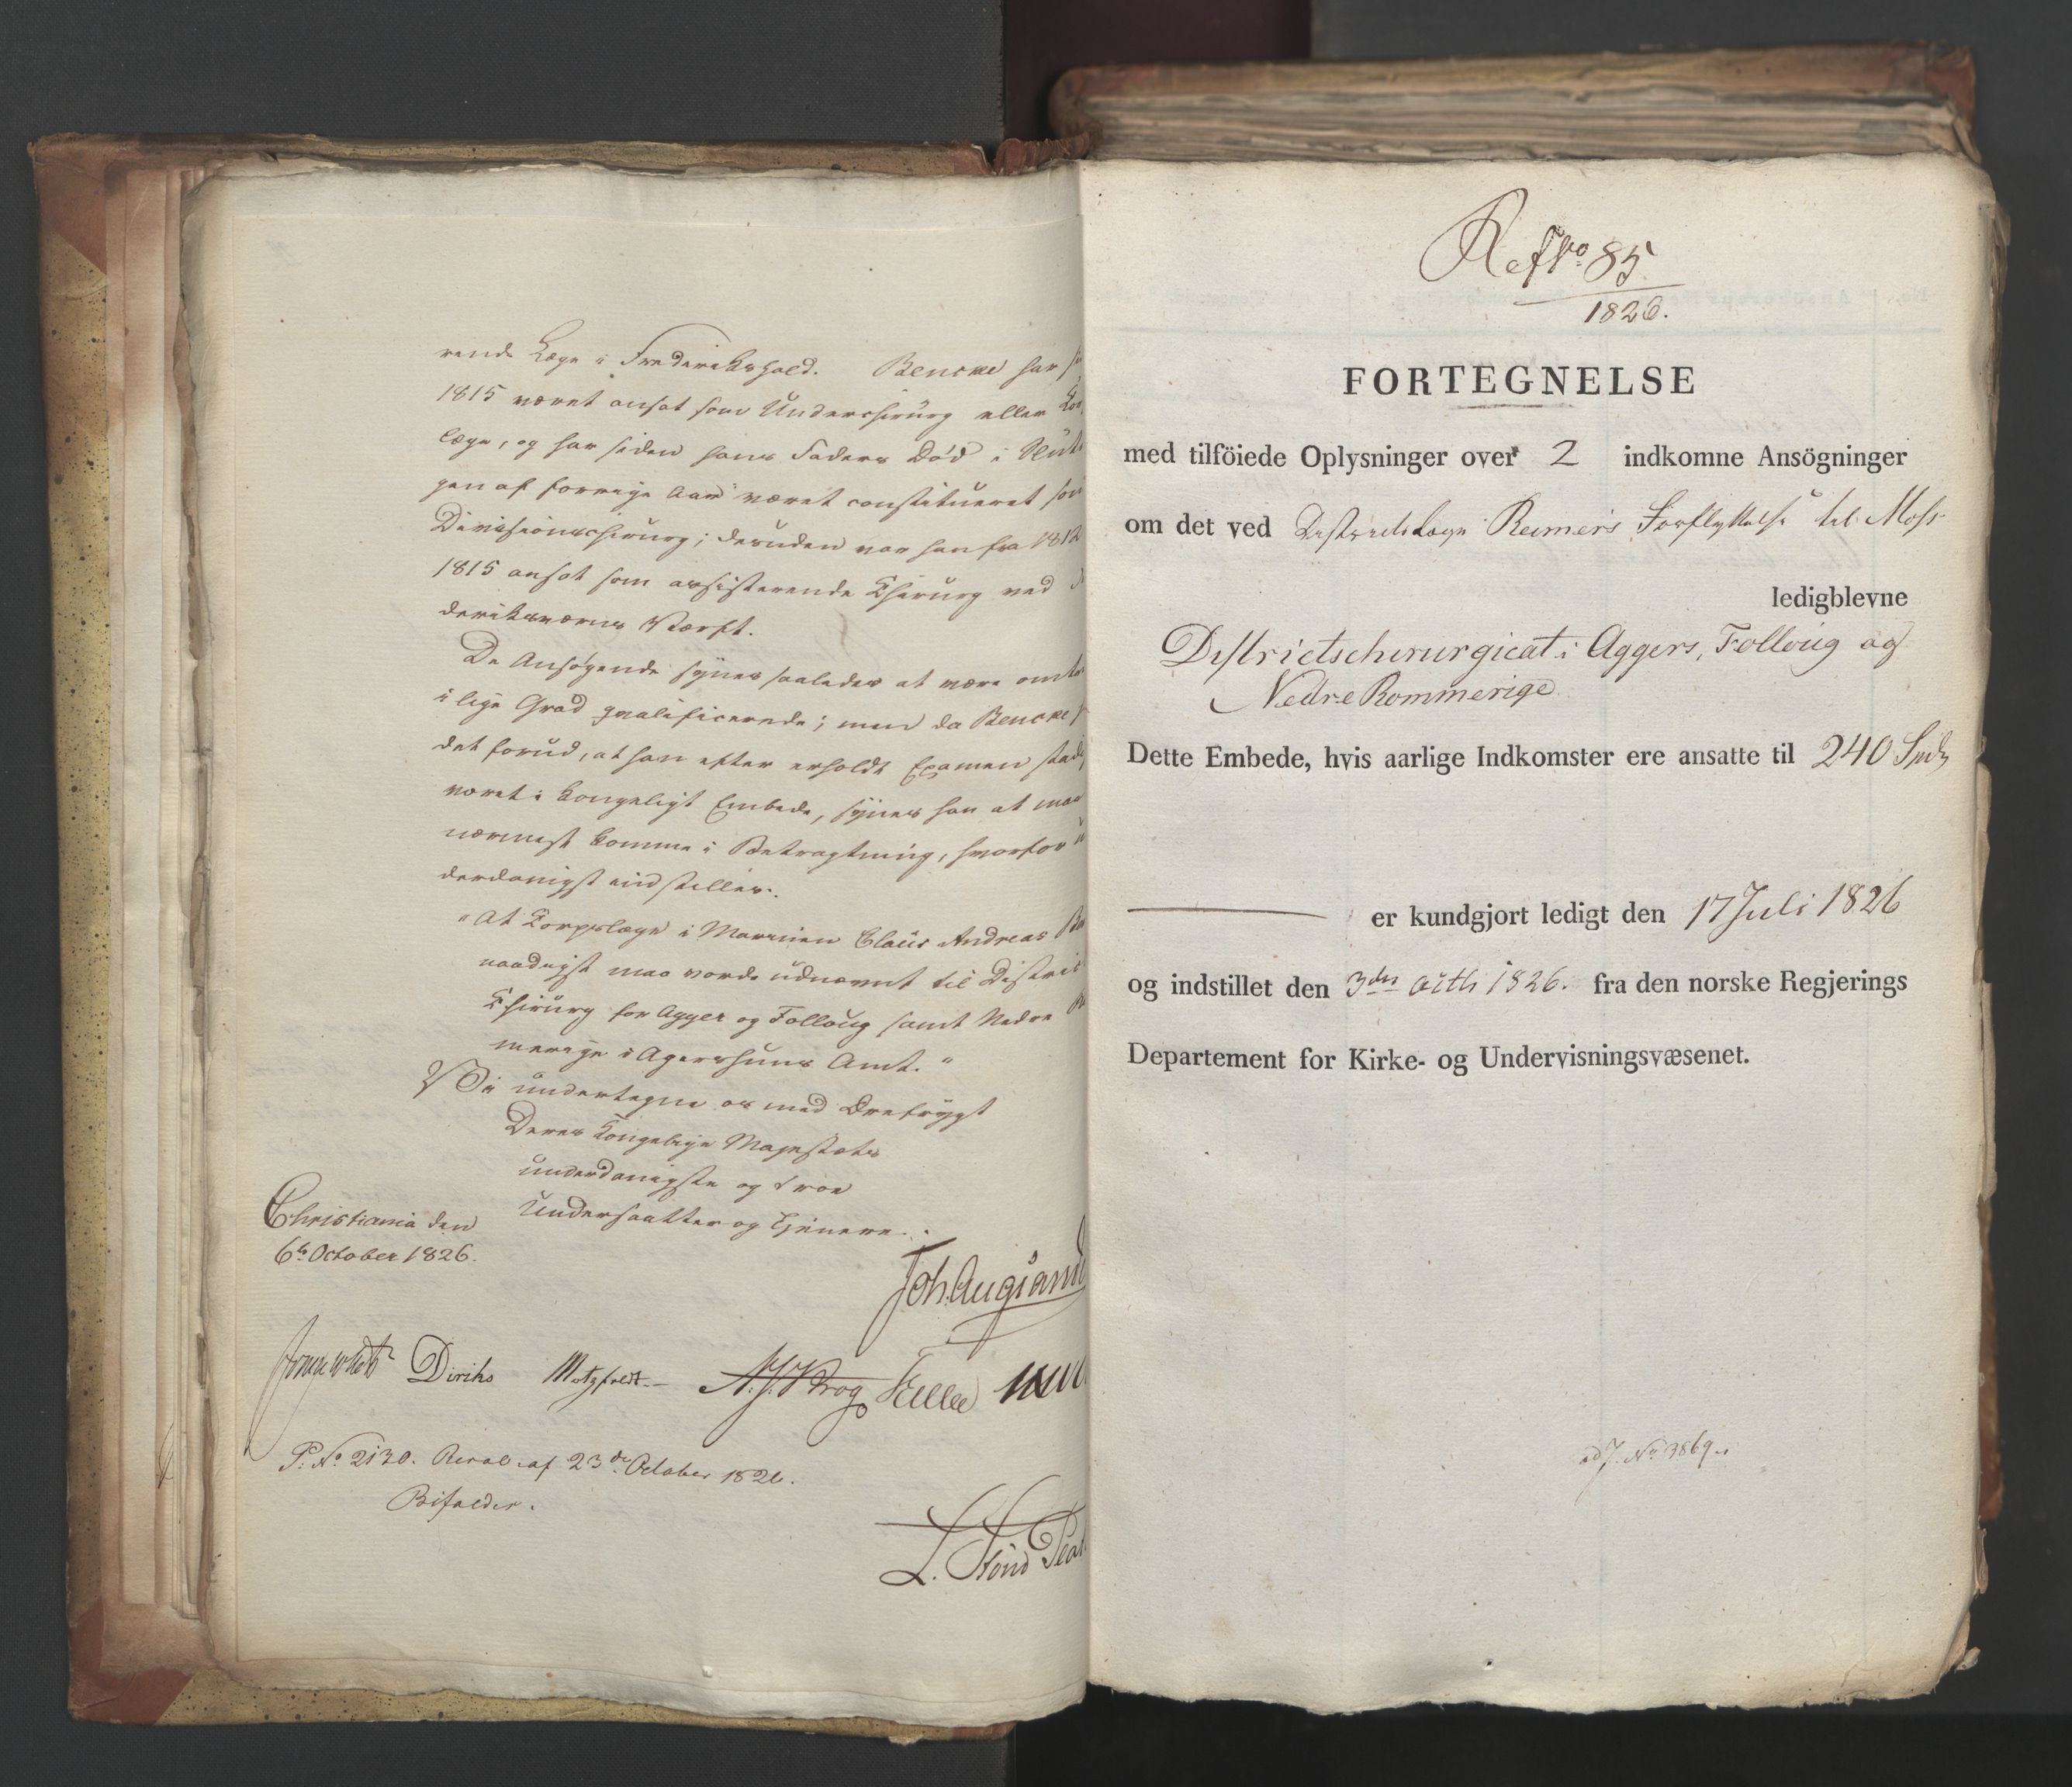 rende Læge i Frederikshald. Bencke har
1815 været ansat som Underchirurg eller
læge, og har siden hans Faders Død i
gen af forrige Aar været constitueret som
Divisionschirurg; desuden var han fra 1812
1815 ansat som assisterende Chirurg ved
deriksværns Værft.
De Ansøgende synes saaledes at være
i lige Grad qvalificerede; men da Bencke
det forud, at han efter erholdt Examen
været i Kongeligt Embede, synes han at maa
nærmest komme i Betragtning, hvorfor
derdanigst indstilles:
"At Corpslæge i Marinen Claus Andreas
naadigst maa vorde udnævnt til
Chirurg for Agger og Folloug samt Nedre
merige i Agershuus Amt."
Vi undertegne os med Ærefrygt
Deres Kongelige Majestæts
underdanigste og troe
Undersaatter og Tjenere.
Christiania den
6te October 1826.
Diriks Motzfeldt A. J. Krog
P. No. 2130. Resol. af 23de October 1826.
Bifaldes.
L.
Ref No 85
1826.
FORTEGNELSE
med tilföiede Oplysninger over 2 indkomne Ansögninger
om det ved Districtslæge Reimers Forflyttelse til Moss
ledigblevne
Districtschirurgicat i Aggers, Folloug og
Nedre Rommerige
Dette Embede, hvis aarlige Indkomster ere ansatte til 240 Spd
er kundgjort ledigt den 17 Juli 1826
og indstillet den 3die 1826. fra den norske Regjerings
Departement for Kirke- og Undervisningsvæsenet.
ad J. No 3869.